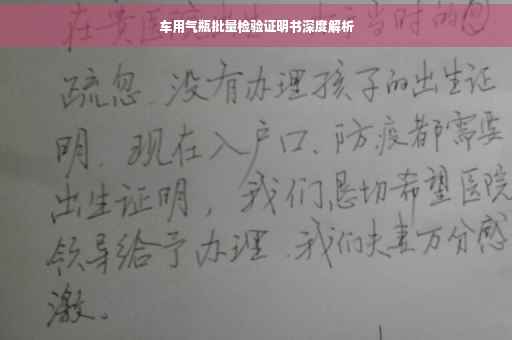 车用气瓶批量检验证明书深度解析
在贵医院 当时的
疏忽、没有办理孩子的出生证
明、现在入户口、防疫都需要
出生证明,我们恳切希望医院
领导给予办理、我们夫妻万分感
激。